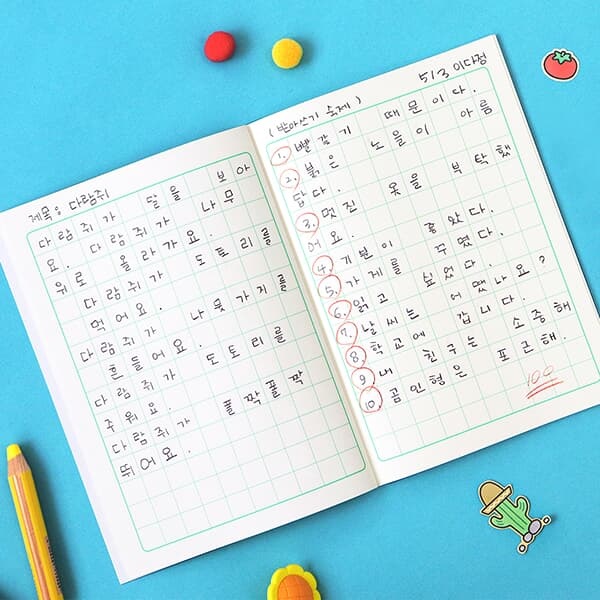 제목: 다람쥐
다람쥐가 달을 보아
요. 다람쥐가 나무
위로 올라가요.
다람쥐가 도토리를
먹어요.
다람쥐가 나뭇가지를
흔들어요.
다람쥐가 도토리를
주워요.
다람쥐가 폴짝폴짝
뛰어요.
(받아쓰기 숙제) 5/3 이다정
1. 빨갛기 때문이다.
2. 붉은 노을이 아름
답다.
3. 멋진 옷을 부탁했
어요.
4. 기분이 좋았다.
5. 가게를 꾸몄다.
6. 읽고 싶었다.
7. 날씨는 어땠나요?
8. 학교에 갑니다.
9. 내 친구는 소중해
10. 곰인형은 포근해.
100